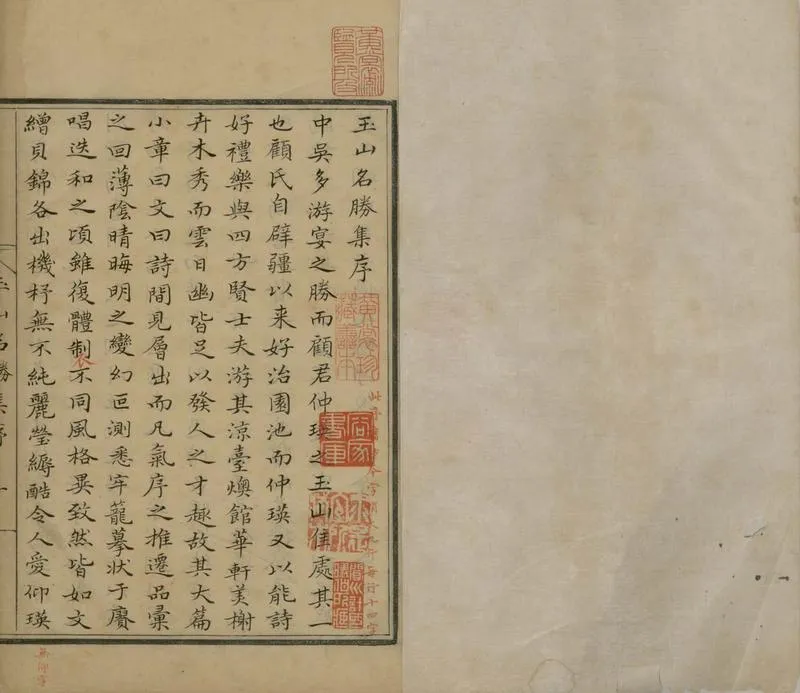 玉山名勝集序
中吳多游宴之勝而顧君仲瑛之玉山佳處其一
也顧氏自辟疆以来好治園池而仲瑛又以能詩
好禮樂與四方賢士夫游其涼臺燠館華軒美榭
卉木秀而雲日幽皆足以發人之才趣故其大篇
小章曰文曰詩間見層出而凡氣序之推遷品彙
之回薄陰晴晦明之變幻叵測悉牢籠摹狀于賡
唱迭和之頃雖復體制不同風格異致然皆如文
繒貝錦各出機杼無不純麗瑩縟酷令人愛仰瑛
玉山名勝集序